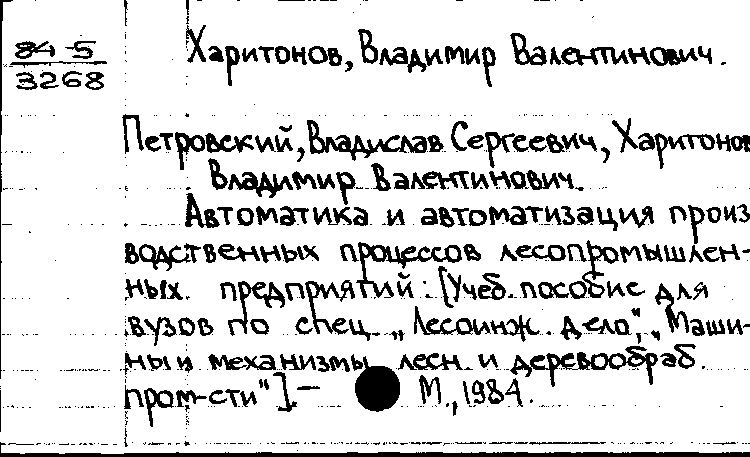 84-5
3268
Харитонов, Владимир Валентинович.
Петровский, Владислав Сергеевич, Харитонов
Владимир Валентинович.
Автоматика и автоматизация произ
водственных процессов лесопромышлен-
ных предприятий: [Учеб. пособие для
вузов по спец. „Лесоинж. дело", „Маши-
ны и механизмы лесн. и деревообраб.
пром-сти"].— М., 1984.